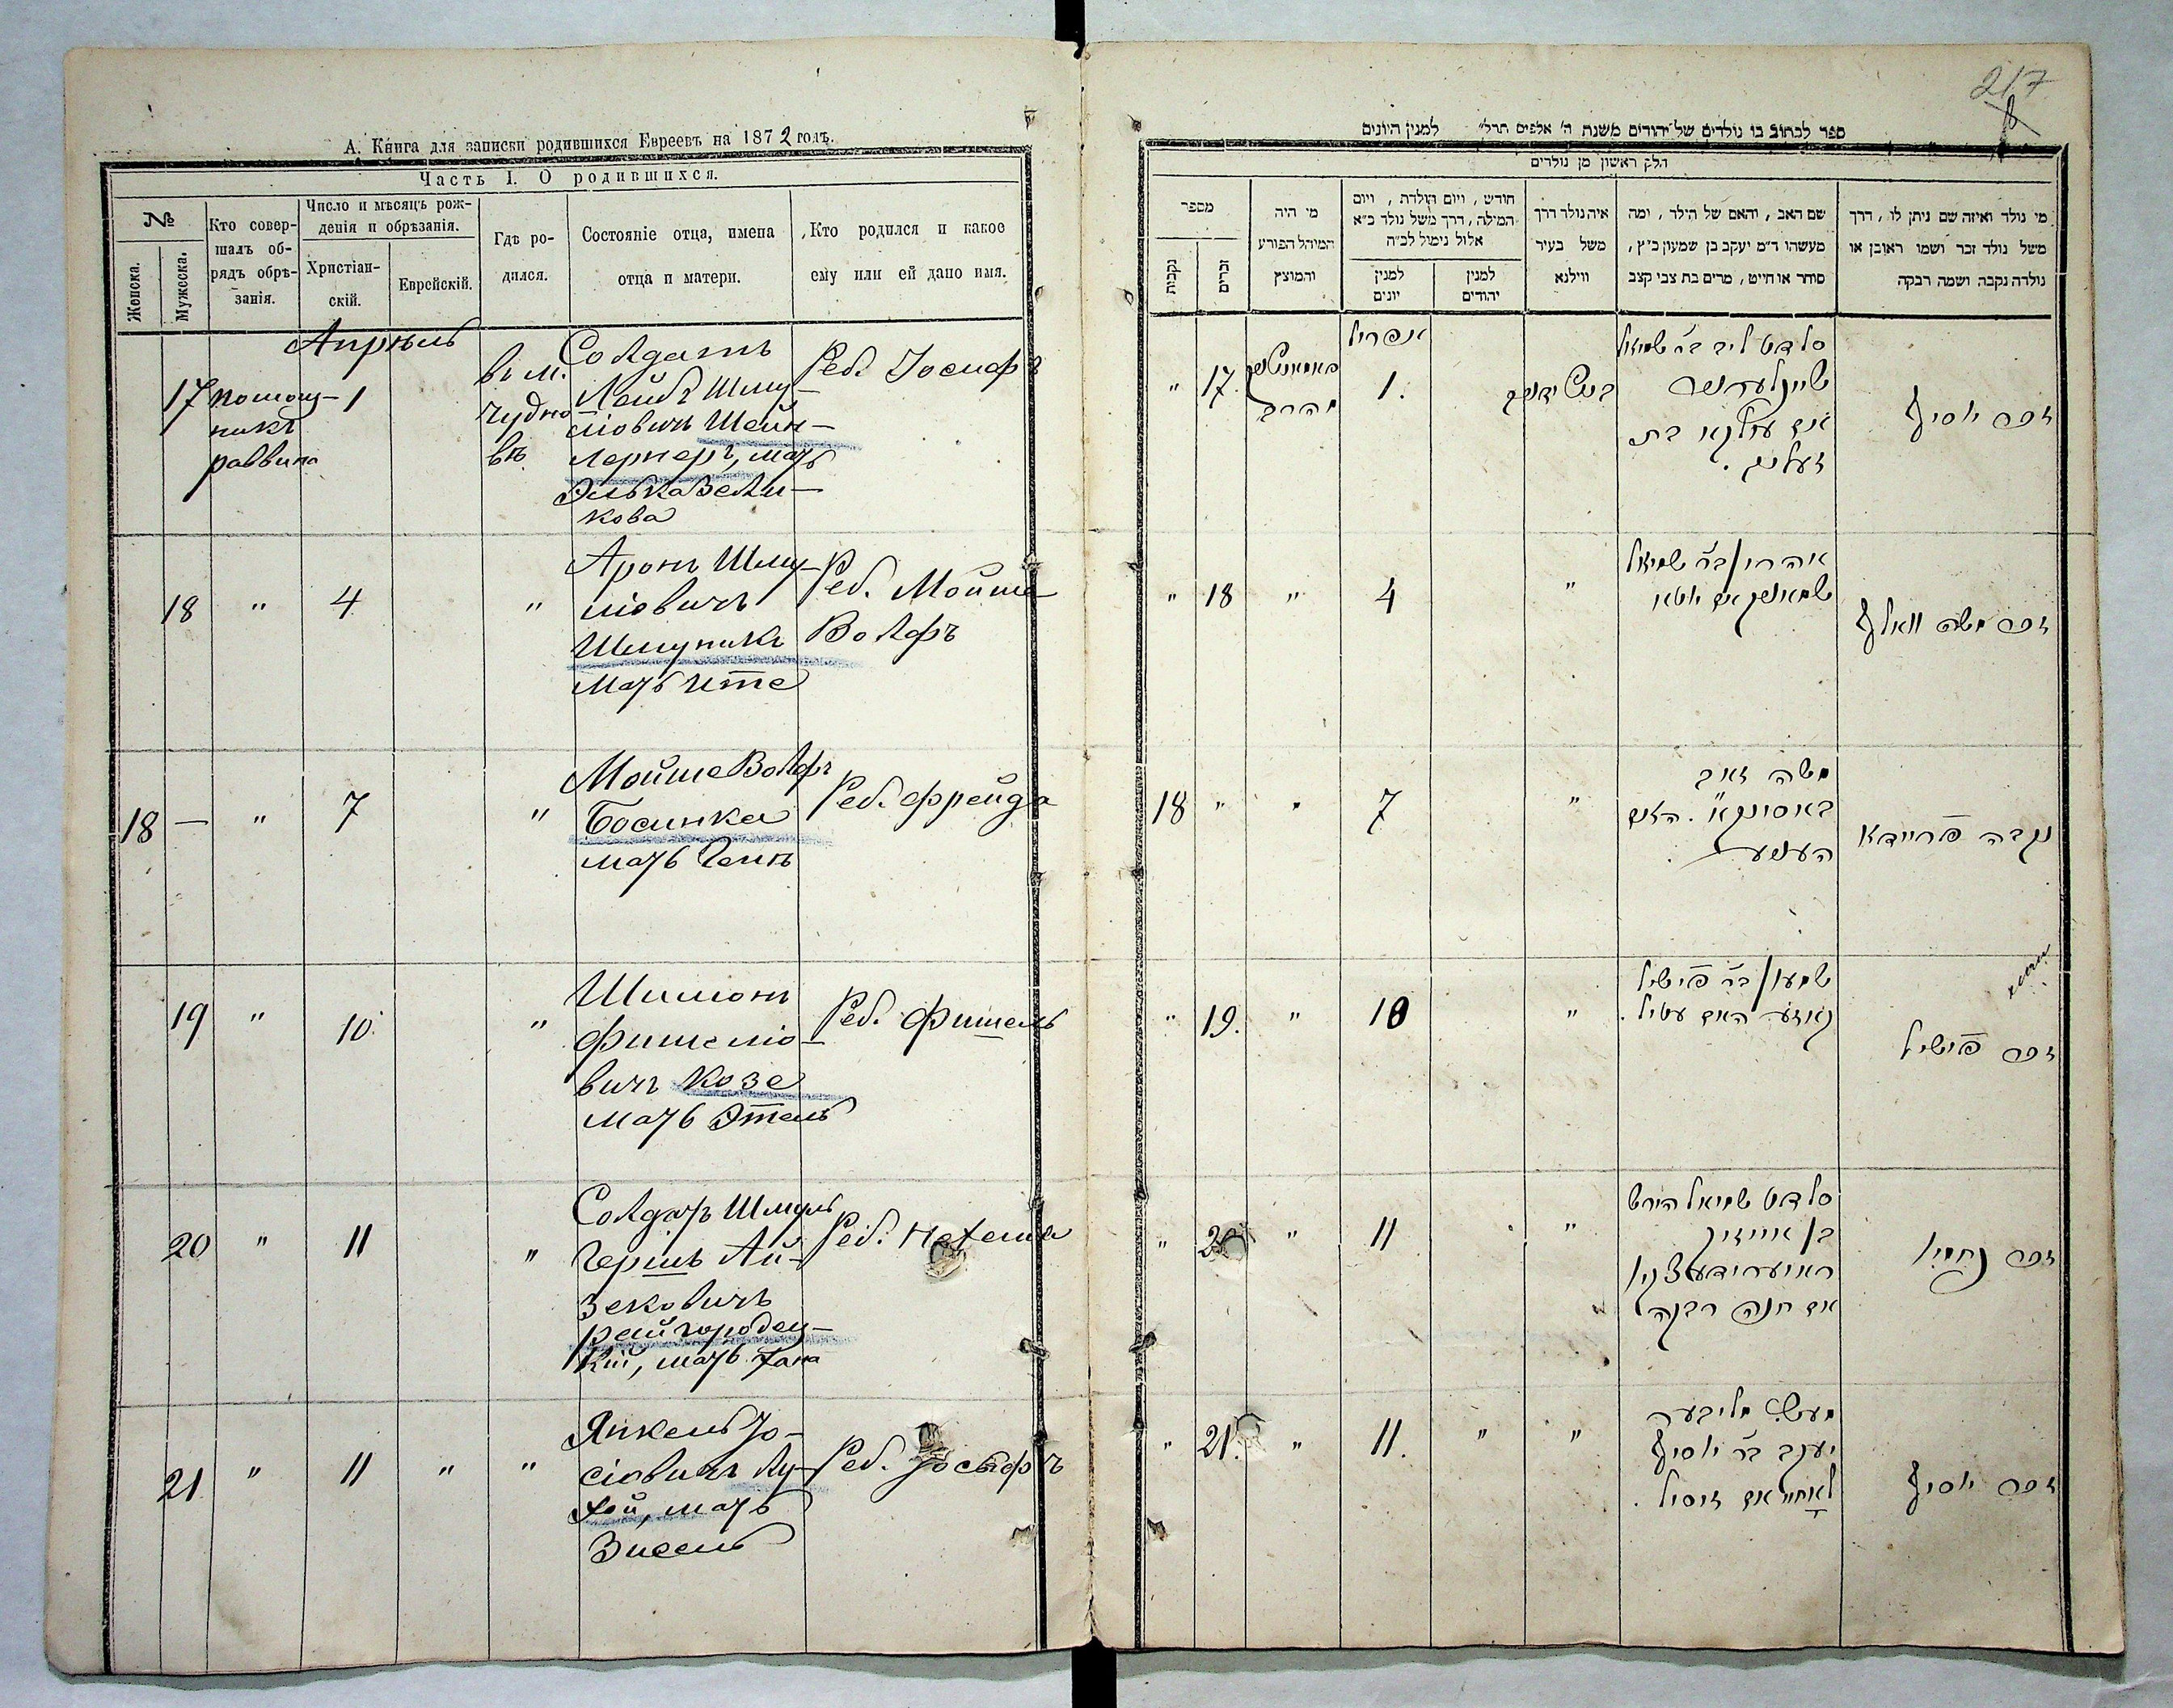 А. Книга для записки родившихся Евреевъ на 1872 годъ.
Часть I. О родившихся.
№
Женска.
Мужеска.
Кто совер-
шалъ об-
рядъ обрѣ-
занія.
Число и мѣсяцъ рож-
денія и обрѣзанія.
Христіан-
скій.
Еврейскій.
Гдѣ ро-
дился.
Состояніе отца, имена
отца и матери.
Кто родился и какое
ему или ей дано имя.
Апрѣль
17
помощ-
никъ
раввина
1
въ м.
Чудно-
вѣ
Солдатъ
Лейбъ Шму-
ліовичъ Шейн-
лернеръ, мать
Элька Зели-
кова
Реб. Іосифъ
18 " 4 "
Аронъ Шму-
ліовичъ
Шмуникъ
мать Ите
Реб. Мойше
Вольфъ
18 — " 7 "
Мойше Вольфъ
Босинка
мать Геня
Реб. Фрейда
19 " 10 "
Шимонъ
Фишеліо-
вичъ Козе
мать Этель
Реб. Фишель
20 " 11 "
Солдатъ Шмуль
Гершъ Ай-
зековичъ
Райгородец-
кій, мать Хана
Реб. Нехемя
21 " 11 " "
Янкель Іо-
сіовичъ Лу-
хой, мать
Зисель
Реб. Іосифъ
217
ספר לכתוב בו נולדים של יהודים משנת ה' אלפים תרל" למנין היונים
חלק ראשון מן נולדים
מספר
נקבות
זכרים
מי היה
המוהל הפורע
והמוצץ
חודש, ויום הולדת, ויום
המילה, דרך משל נולד כ"א
אלול נימול לכ"ה
למנין
יונים
למנין
יהודים
איה נולד דרך
משל בעיר
ווילנא
שם האב, והאם של הילד, ומה
מעשהו ד"מ יעקב בן שמעון כ"ץ,
סוחר או חייט, מרים בת צבי קצב
מי נולד ואיזה שם ניתן לו, דרך
משל נולד זכר ושמו ראובן או
נולדה נקבה ושמה רבקה
אפריל
" 17. 1.
סלדט ליב בר שמואל
זכר יוסיף
" 18 " 4 "
אהרון בר שמואל
זכר משה וואלף
18 " " 7 "
משה זאב
באסינקא. האם
העניע
נקבה פריידא
" 19. " 10 "
שמעון בר פישיל
קאזע האם עטיל.
זכר פישיל
" 20 " 11 "
סלדט שמואל הירש
בן אייזיק
אם חנה רבקה
זכר נחמין
" 21. " 11. " "
יעקב בר יוסיף
לאחיי אם זיסיל.
זכר יוסיף